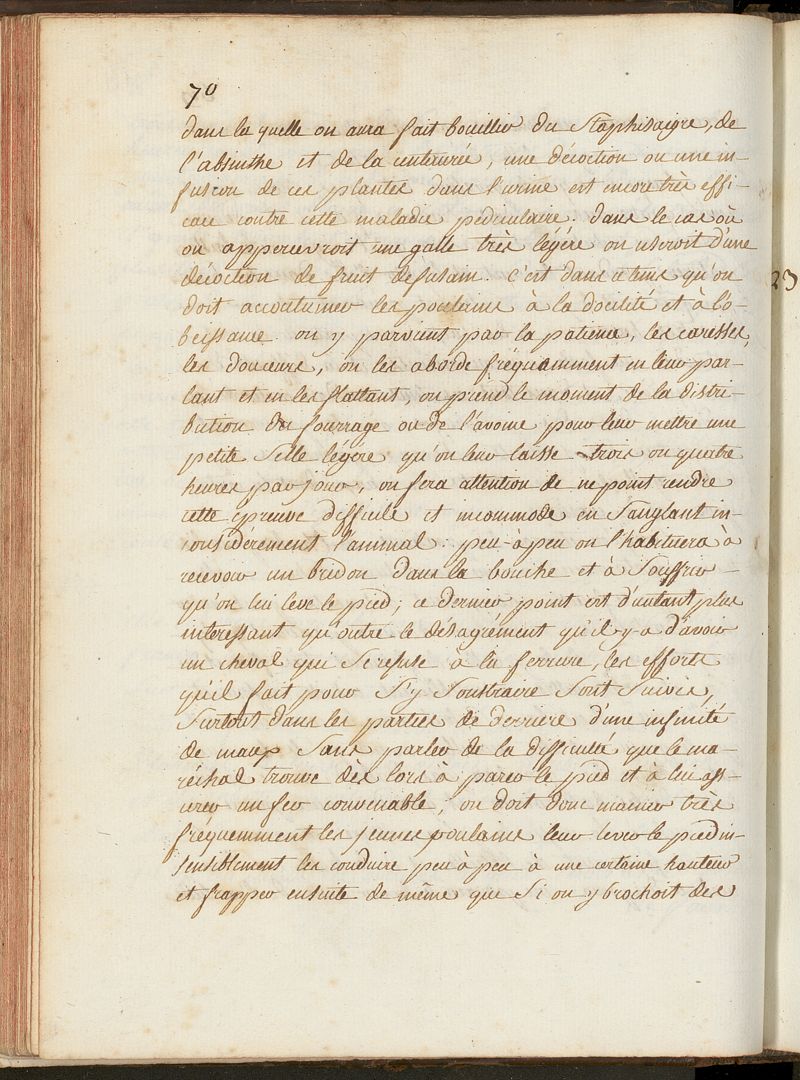 70
dans la quelle on aura fait bouillir du Staphisaigre, de
l'absinthe et de la centaurée, une décoction ou une in-
fusion de ces plantes dans l'urine est encore très effi-
cace contre cette maladie pédiculaire. dans le cas où
on appercevroit une galle très légére on useroit d'une
décoction de fruit defusain. C'est dans ce tems qu'on
doit accoutumer les poulains à la docilité et à l'o-
beissance on y parvient par la patience, les caresses,
les douceurs, on les abórde fréquamment en leur par-
lant et en les flattant, on prend le moment de la distri-
bution du fourrage ou de l'avoine pour leur mettre une
petite Selle légere qu'on leur laisse trois ou quatre
heures par jour, on fera attention de ne point rendre
cette épreuve difficile et incommode en Sanglant in-
considerement l'animal: peu-à peu on l'habituera à
recevoir un bridon dans la bouche et à Souffrir
qu'on lui leve le pied; ce dernier point est d'autant plus
intéressant qu'outre le désagrément qu'il-y-a d'avoir
un cheval qui Se refuse à la ferrure, les efforts
qu'il fait pour S'y Soustraire Sont Suivis,
Surtout dans les parties de derriere d'une infinité
de maux Sans parler de la difficulté que le ma-
réchal trouve dès lors à parer le pied et à lui ass-
urer un fer convenable; on doit donc manier très
fréquemment les jeunes poulains leur lever le pied in-
sensiblement les conduire peu à peu à une certaine hauteur
et frapper ensuite de même que Si on y brochoit des
23